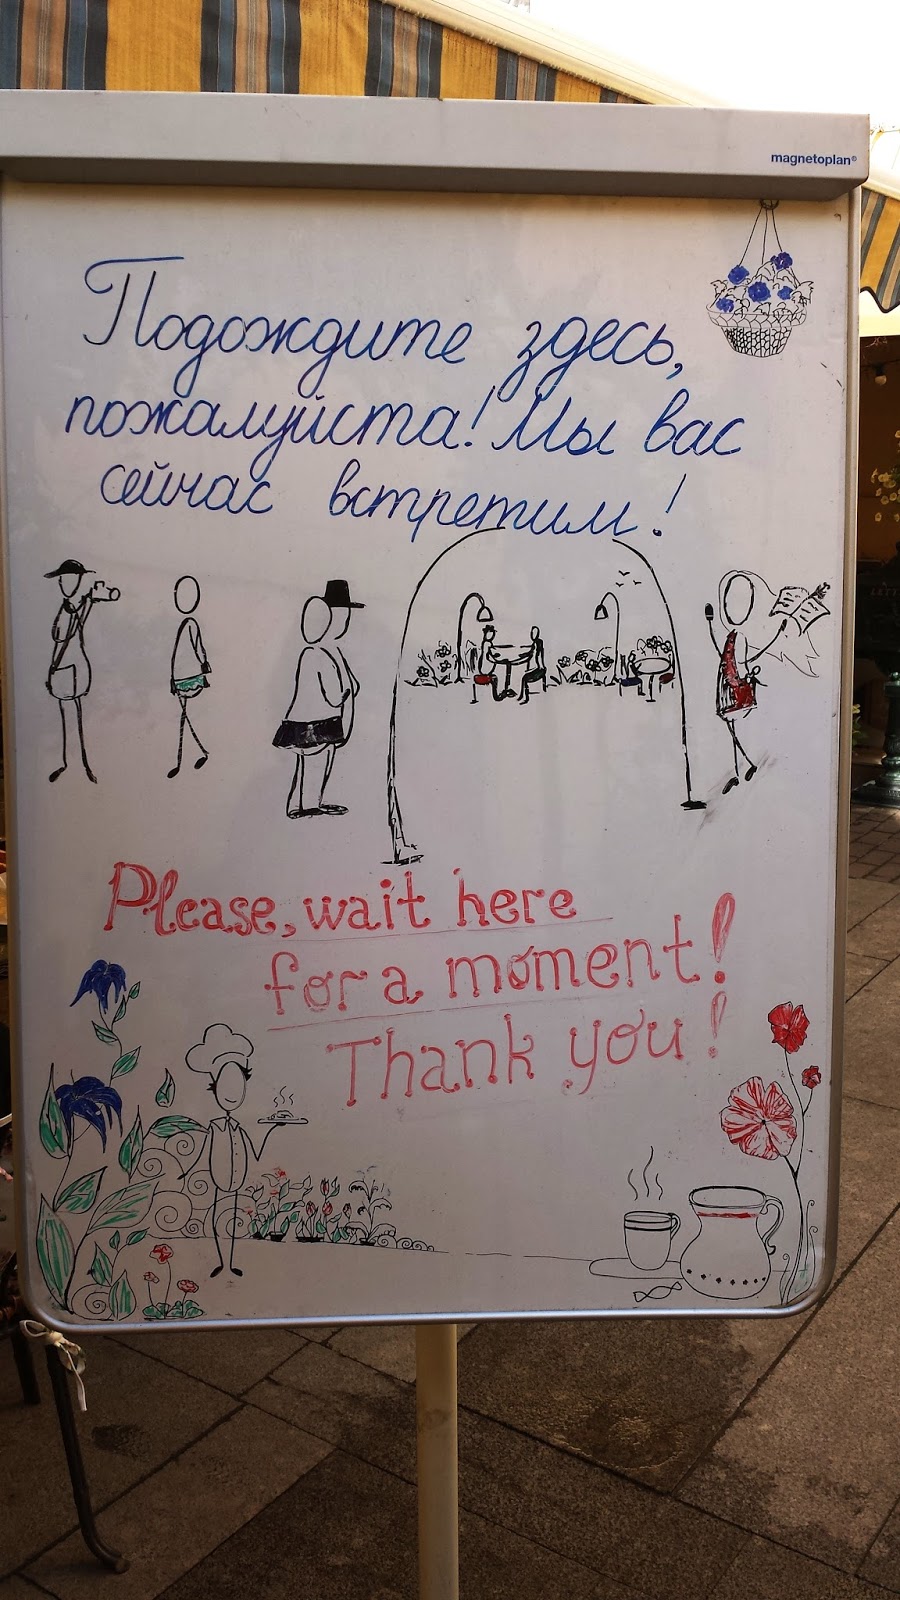 magnetoplan®
Подождите здесь,
пожалуйста! Мы вас
сейчас встретим!
Please, wait here
for a moment!
Thank you!